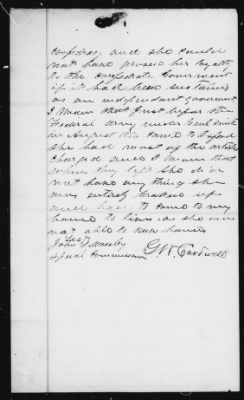 confedracy and she could
not have proven her loyalty
to the confederate Goverment
if it had been sustained
as an independant goverment
I know that Just before the
Federal army under Genl Smith
in August 1864 came to Oxford
she had most of the articles
charged and I know that
when they left she did
not have any thing she
was entirely broken up
and had to come to my
house to live as she was
not able to keep house
G. W. Cardwell
John
Special Commissioner